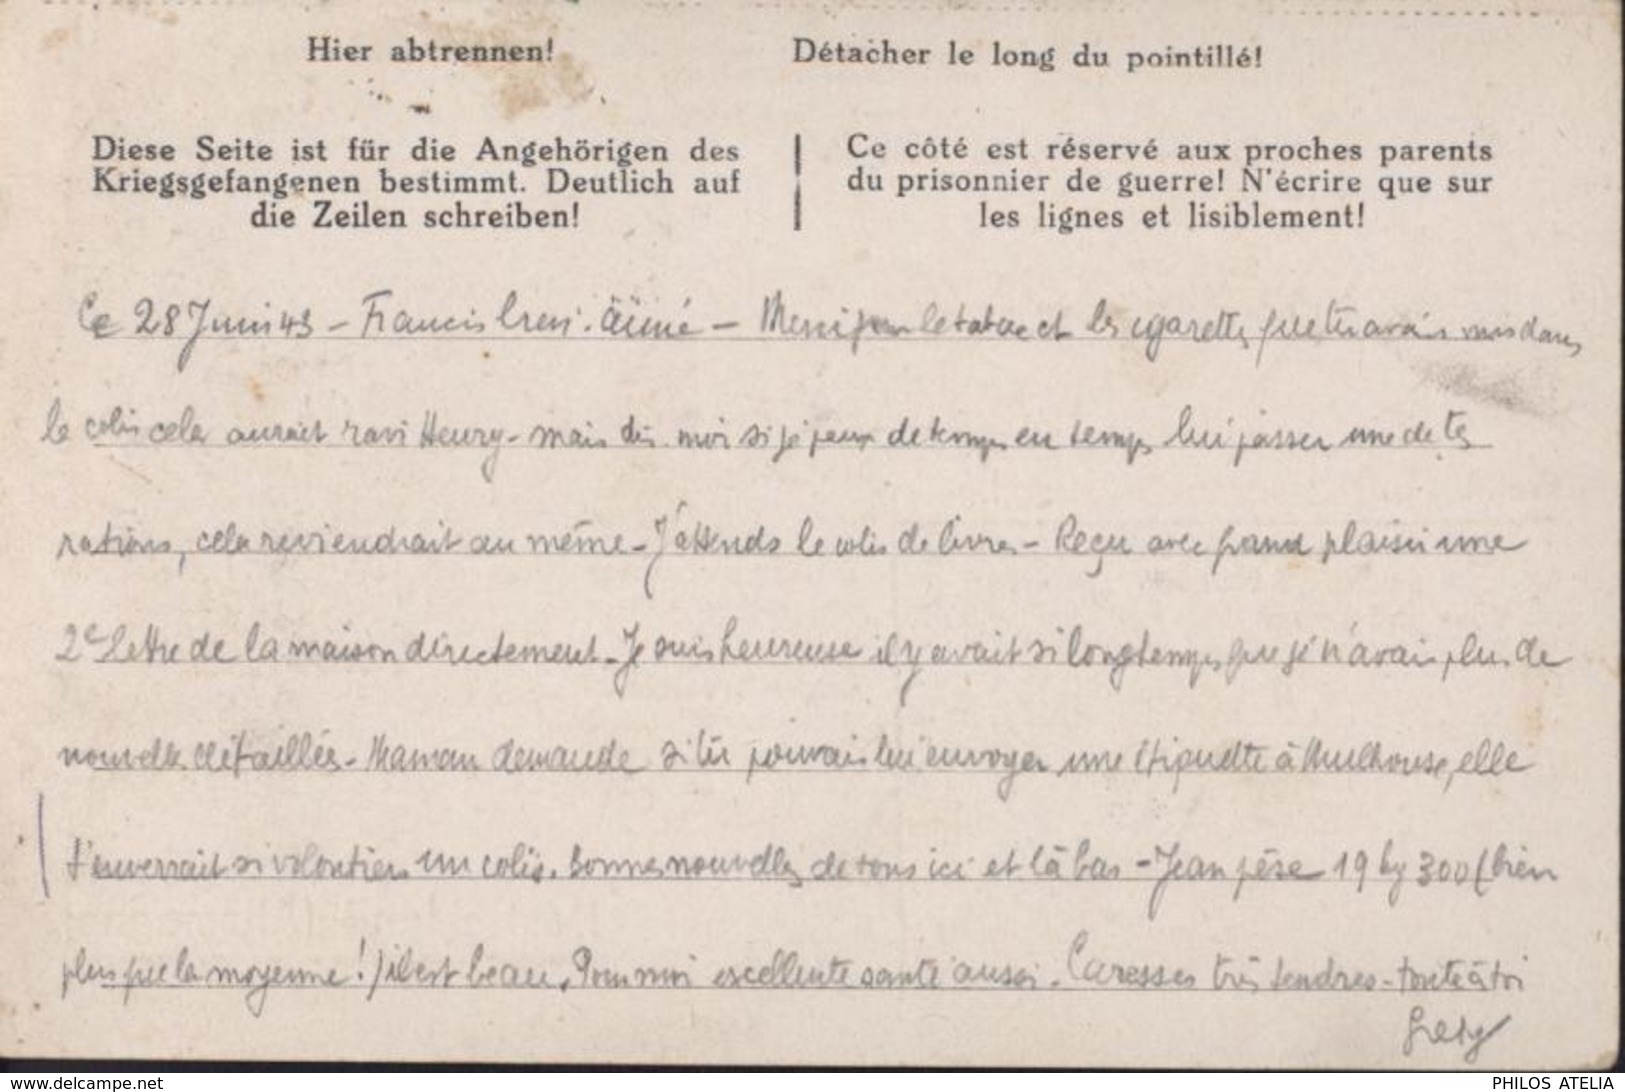 Hier abtrennen! Détacher le long du pointillé!
Diese Seite ist für die Angehörigen des
Kriegsgefangenen bestimmt. Deutlich auf
die Zeilen schreiben!
Ce côté est réservé aux proches parents
du prisonnier de guerre! N'écrire que sur
les lignes et lisiblement!
Ce 28 Juin 43 - Francis bien aimé - Merci pour le tabac et les cigarettes que tu avais mis dans
le colis cela aurait ravi Henry - mais dis moi si je peux de temps en temps lui passer une de tes
rations, cela reviendrait au même - J'attends le colis de livres - Reçu avec grand plaisir une
2e lettre de la maison directement - Je suis heureuse il y avait si longtemps que je n'avais plus de
nouvelles détaillées - Maman demande si tu pouvais lui envoyer une étiquette à Mulhouse, elle
t'enverrait si volontiers un colis. Bonnes nouvelles de tous ici et là bas - Jean pèse 19 kg 300 (bien
plus que la moyenne!) il est beau. Pour moi excellente santé aussi. Caresses très tendres - toute à toi
www.delcampe.net
PHILOS ATELIA